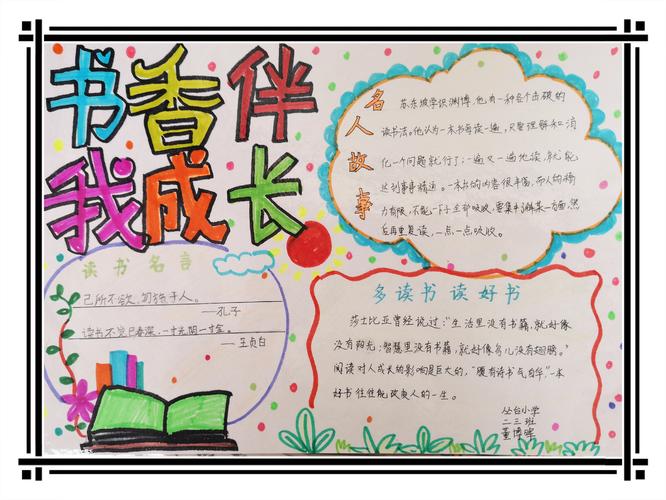 书香伴
我成长
名人故事
苏东坡学识渊博,他有一种各个击破的
读书法。他认为一本书每读一遍,只要理解和消
化一个问题就行了;一遍又一遍地读,就能
达到事事精通。一本书的内容很丰富,而人的精
力有限,不能一下子全部吸收,要集中了解某一方面,然
后再重复读,一点一点吸收。
读书名言
己所不欲,勿施于人。
——孔子
读书不觉已春深,一寸光阴一寸金。
——王贞白
多读书 读好书
莎士比亚曾经说过:“生活里没有书籍,就好像
没有阳光;智慧里没有书籍,就好像鸟儿没有翅膀。”
阅读对人成长的影响是巨大的,“腹有诗书气自华”,一本
好书往往能改变人的一生。
丛台小学
二三班
董博